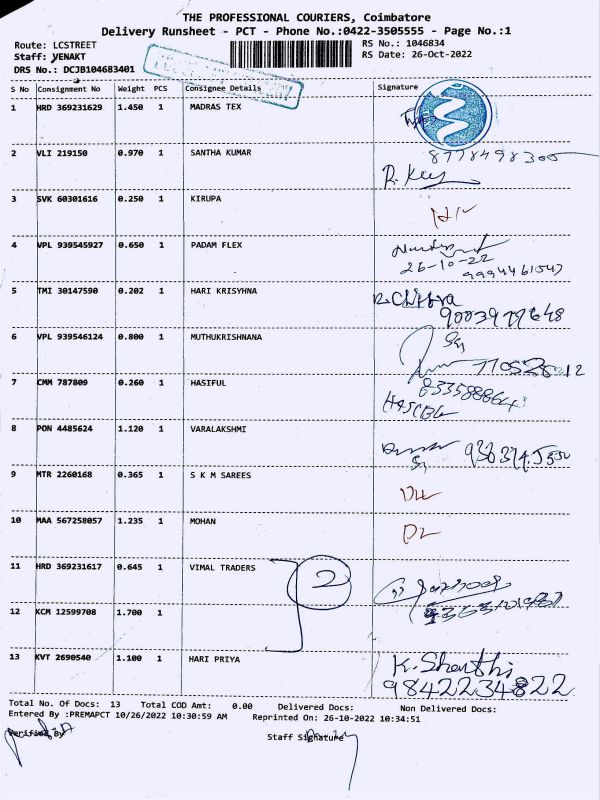 THE PROFESSIONAL COURIERS, Coimbatore
Delivery Runsheet - PCT - Phone No.:0422-3505555 - Page No.:1
Route: LCSTREET RS No.: 1046834
Staff: VENAKT RS Date: 26-Oct-2022
DRS No.: DCJB104683401
S No Consignment No Weight PCS Consignee Details Signature
1 HRD 369231629 1.450 1 MADRAS TEX
8778498305
2 VLI 219150 0.970 1 SANTHA KUMAR
3 SVK 60301616 0.250 1 KIRUPA
4 VPL 939545927 0.650 1 PADAM FLEX
26-10-22
9994461547
5 TMI 30147590 0.202 1 HARI KRISYHNA R. Chitra
6 VPL 939546124 0.800 1 MUTHUKRISHNANA
7 CMM 787809 0.260 1 HASIFUL
8 PON 4485624 1.120 1 VARALAKSHMI
9 MTR 2260168 0.365 1 S K M SAREES
10 MAA 567258057 1.235 1 MOHAN
11 HRD 369231617 0.645 1 VIMAL TRADERS 2
12 KCM 12599708 1.700 1
13 KVT 2690540 1.100 1 HARI PRIYA K. Shanthi
9842234822
Total No. Of Docs: 13 Total COD Amt: 0.00 Delivered Docs: Non Delivered Docs:
Entered By :PREMAPCT 10/26/2022 10:30:59 AM Reprinted On: 26-10-2022 10:34:51
Verified By Staff Signature